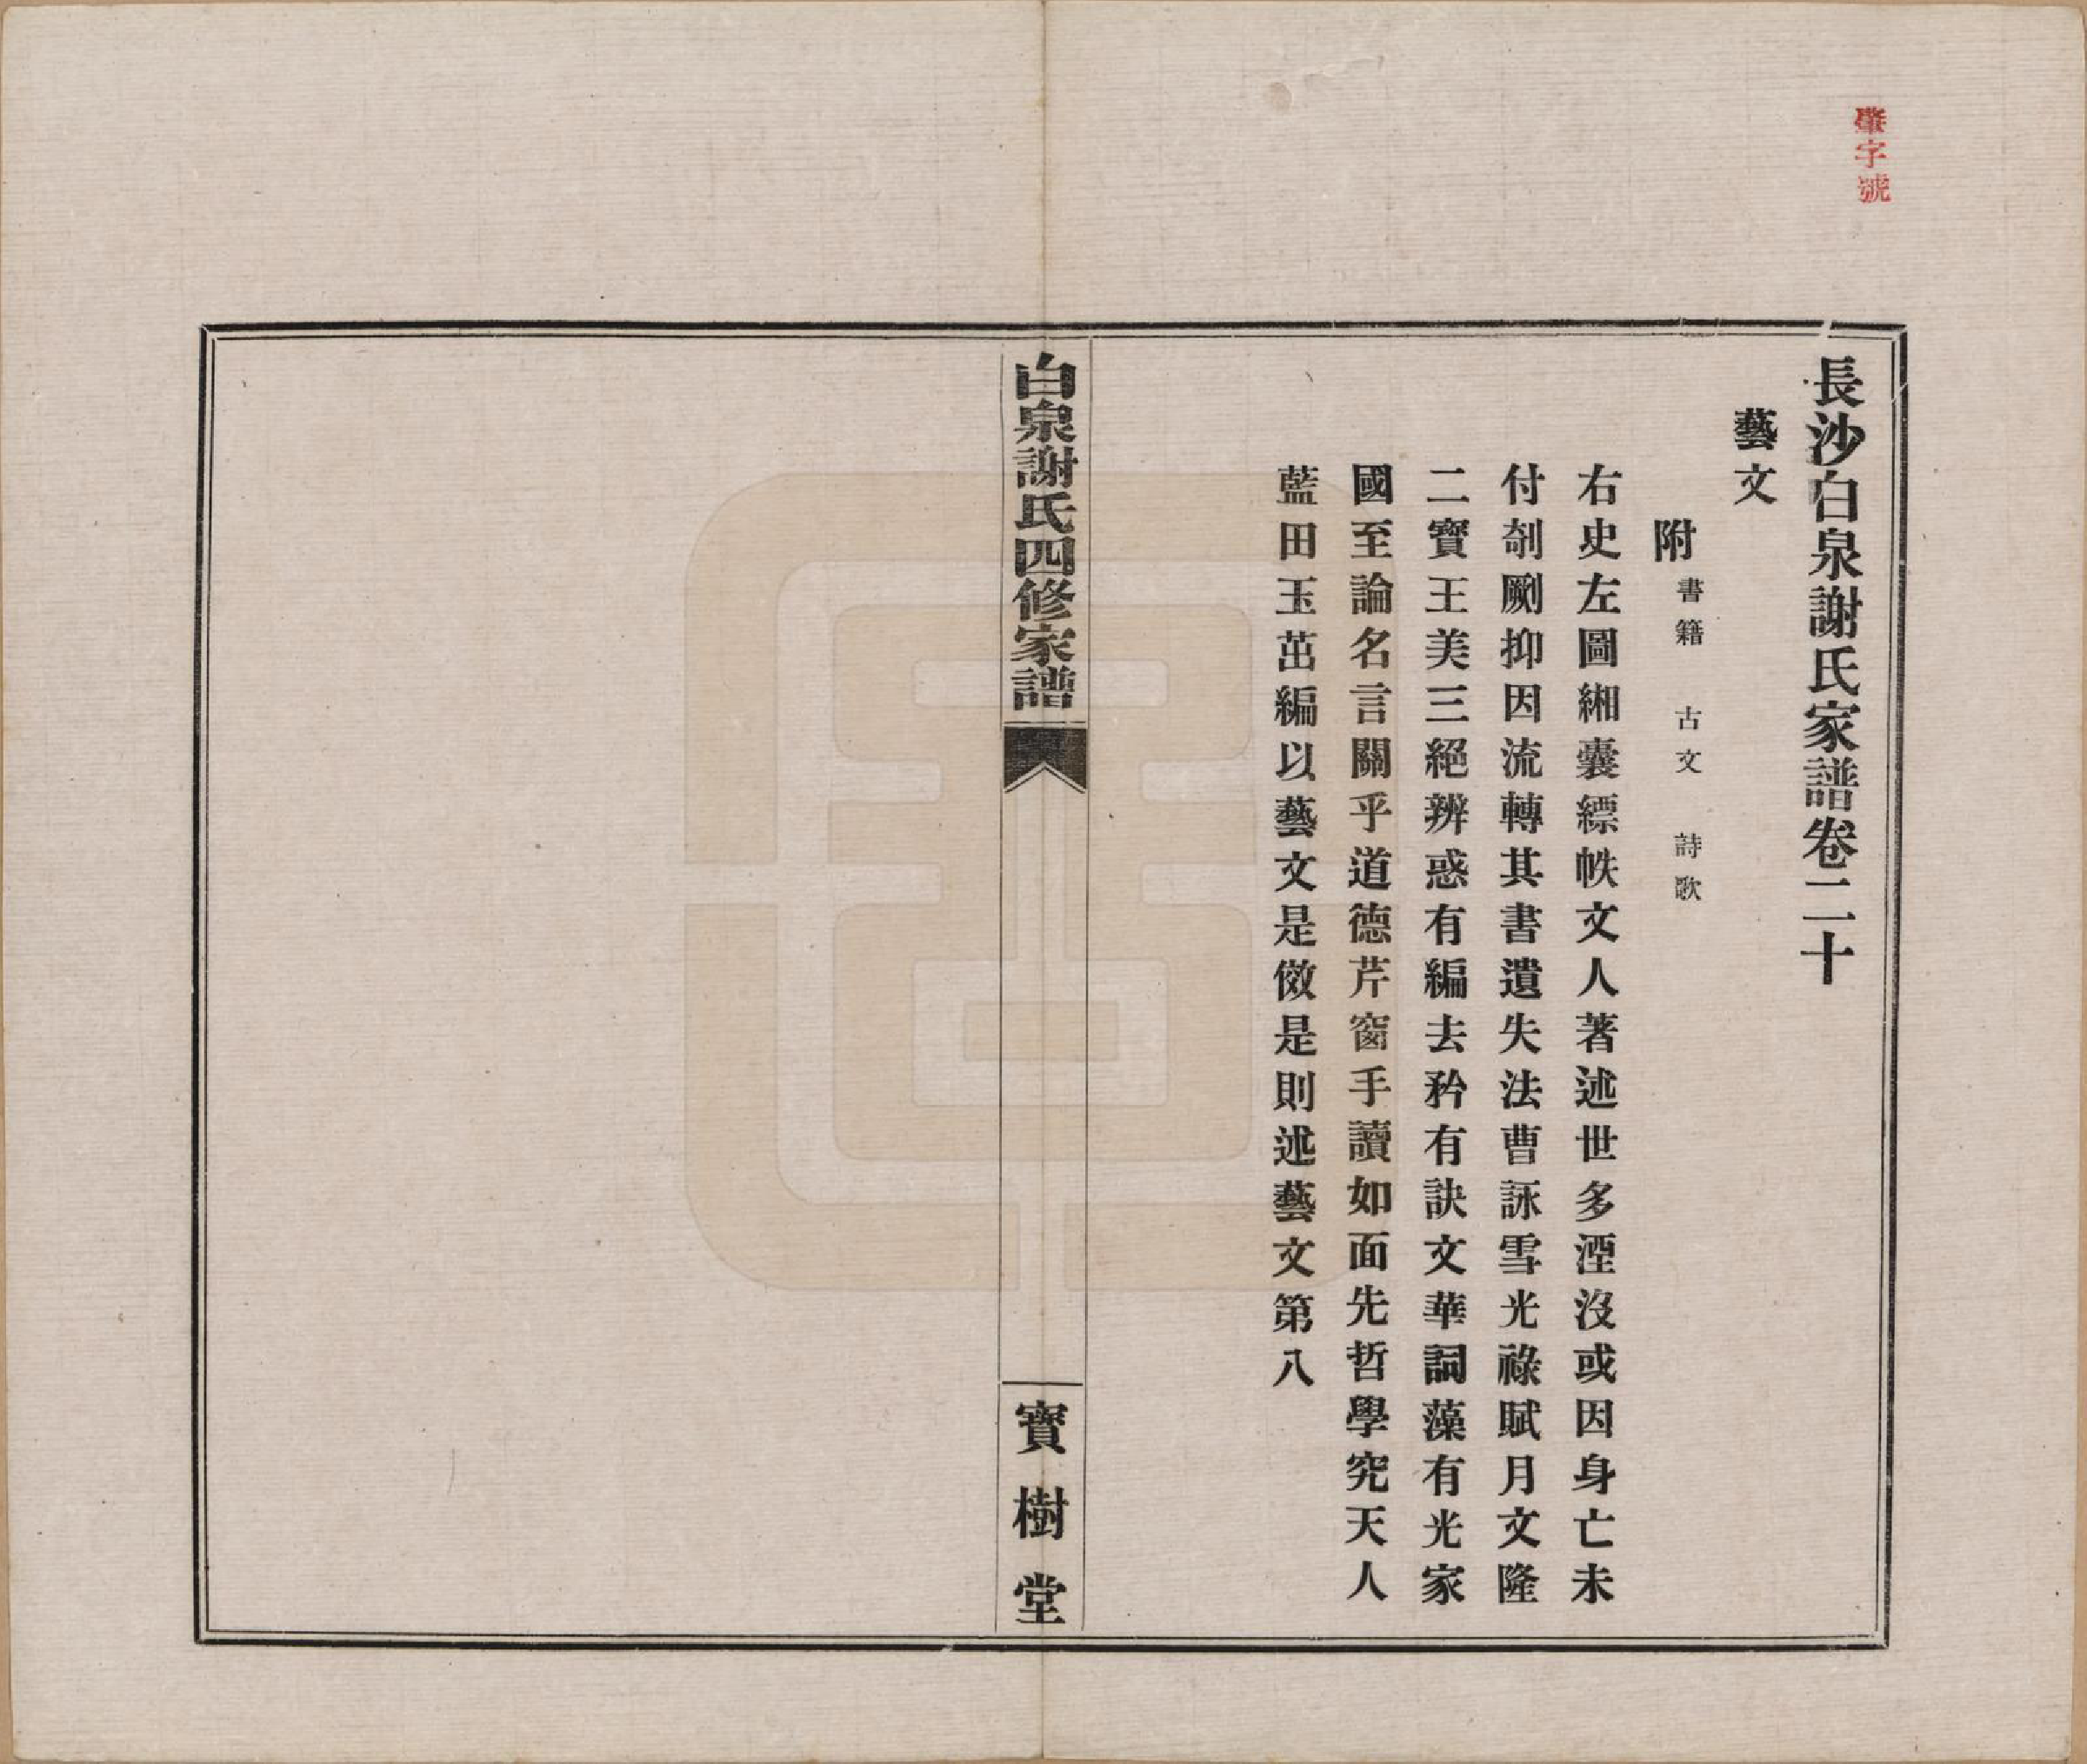 肇字號
長沙白泉謝氏家譜卷二十
藝文
附書籍 古文 詩歌
右史左圖緗囊縹帙文人著述世多湮沒或因身亡未
付剞劂抑因流轉其書遺失法曹詠雪光祿賦月文隆
二寶王美三絕辨惑有編去矜有訣文華詞藻有光家
國至論名言關乎道德芹窗手讀如面先哲學究天人
藍田玉茁編以藝文是傚是則述藝文第八
白泉謝氏四修家譜
寶樹堂